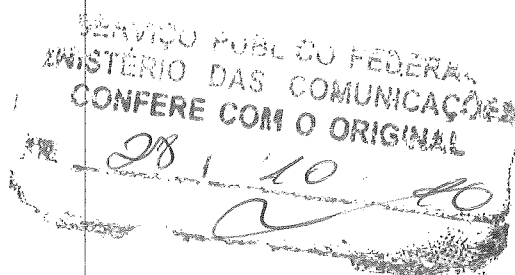 SERVIÇO PÚBLICO FEDERAL
MINISTÉRIO DAS COMUNICAÇÕES
CONFERE COM O ORIGINAL
28 / 10 / 10